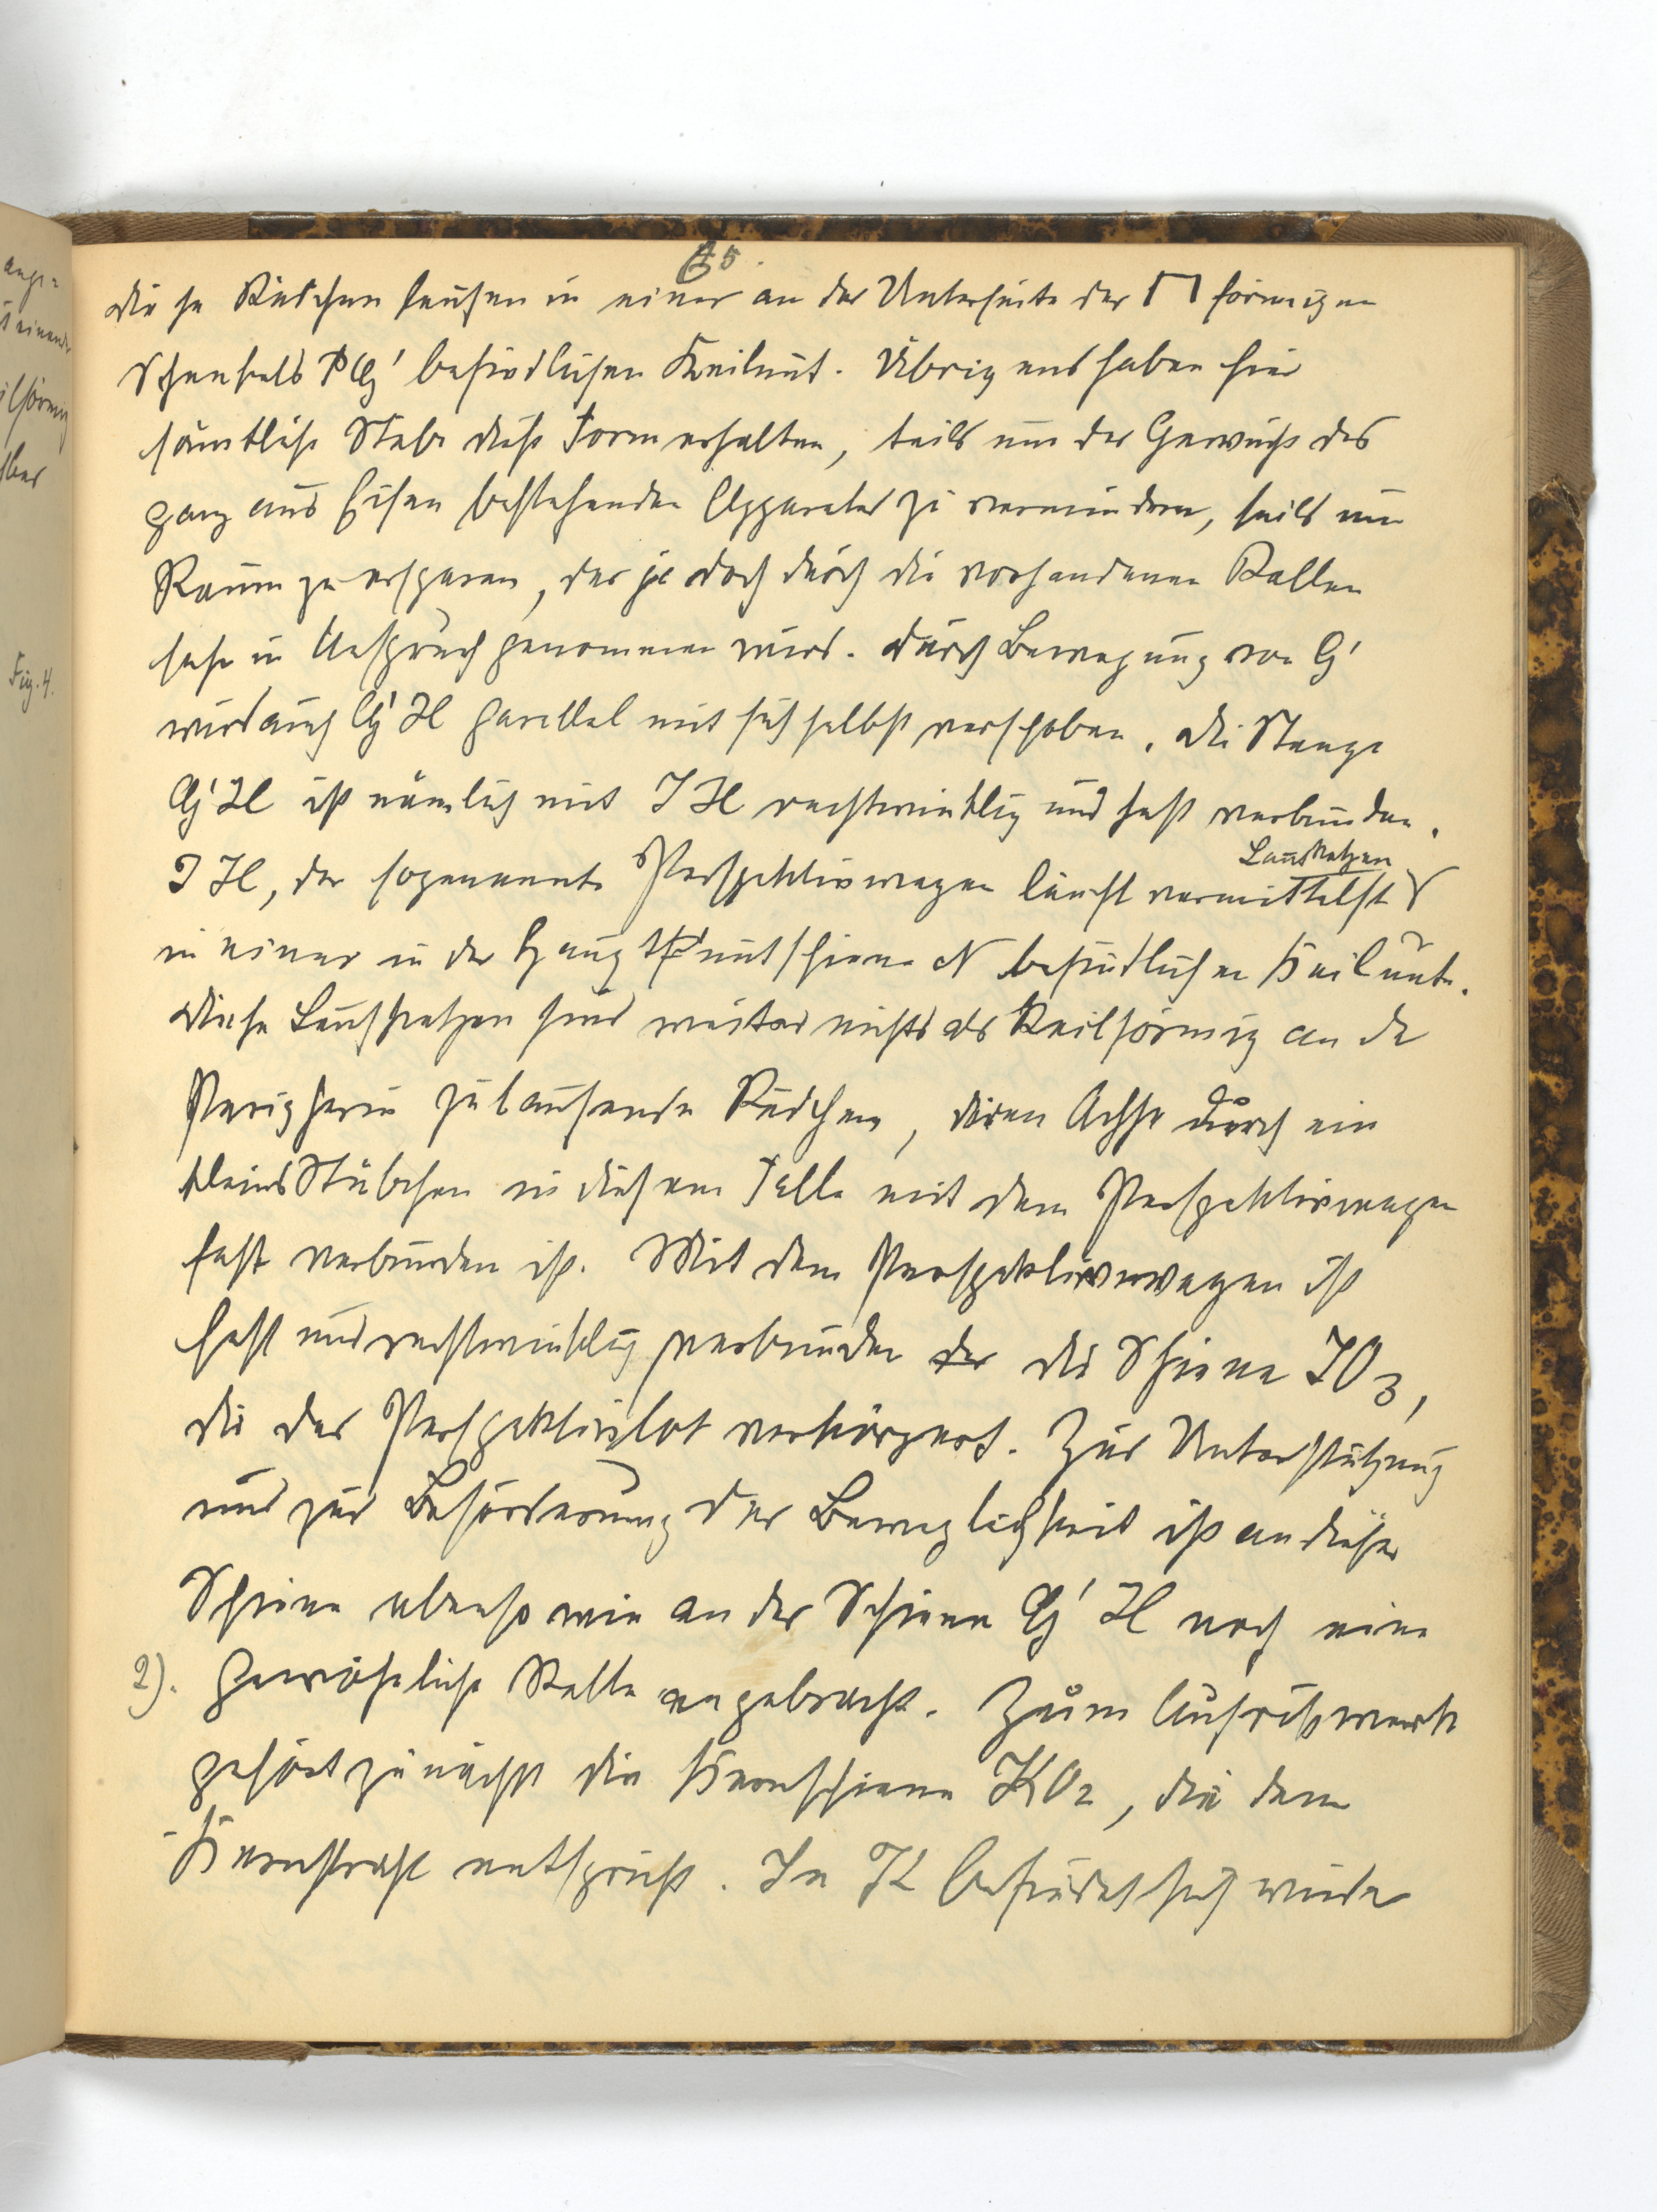 35.
diese Rädchen laufen in einer an der Unterseite des ⊓ förmigen
Schenkels PG' befindlichen Keilnut. Übrigens haben hier
sämtliche Stäbe diese Form erhalten, teils um das Gewicht des
ganz aus Eisen bestehenden Apparates zu vermindern, teils um
Raum zu ersparen, der jedoch durch die vorhandenen Rollen
sehr in Anspruch genommen wird. Durch Bewegung von G'
wird auch G'H parallel mit sich selbst verschoben. Die Stange
G'H ist nämlich mit JH rechtwinklig und fest verbunden.
Laufkatzen
JH, der sogenannte Perspektivwagen läuft vermittelst
in einer in der Hauptnutschiene N befindlichen Keilnute.
Diese Laufkatzen sind weiter nichts als Keilförmig an der
Peripherie zulaufende Rädchen, deren Achse durch ein
kleines Stäbchen in diesem Falle mit dem Perspektivwagen
fest verbunden ist. Mit dem Perspektivwagen ist
fest und rechtwinklig verbunden der die Schiene JO3,
die das Perspektivlot verkörpert. Zur Unterstützung
und zur Beförderung der Beweglichkeit ist an dieser
Schiene ebenso wie an der Schiene G'H noch eine
2). gewöhnliche Rolle angebracht. Zum Aufrißwerk
gehört zunächst die Kernschiene KO2, die dem
Kernstrahl entspricht. In K befindet sich wieder
Fig. 4.